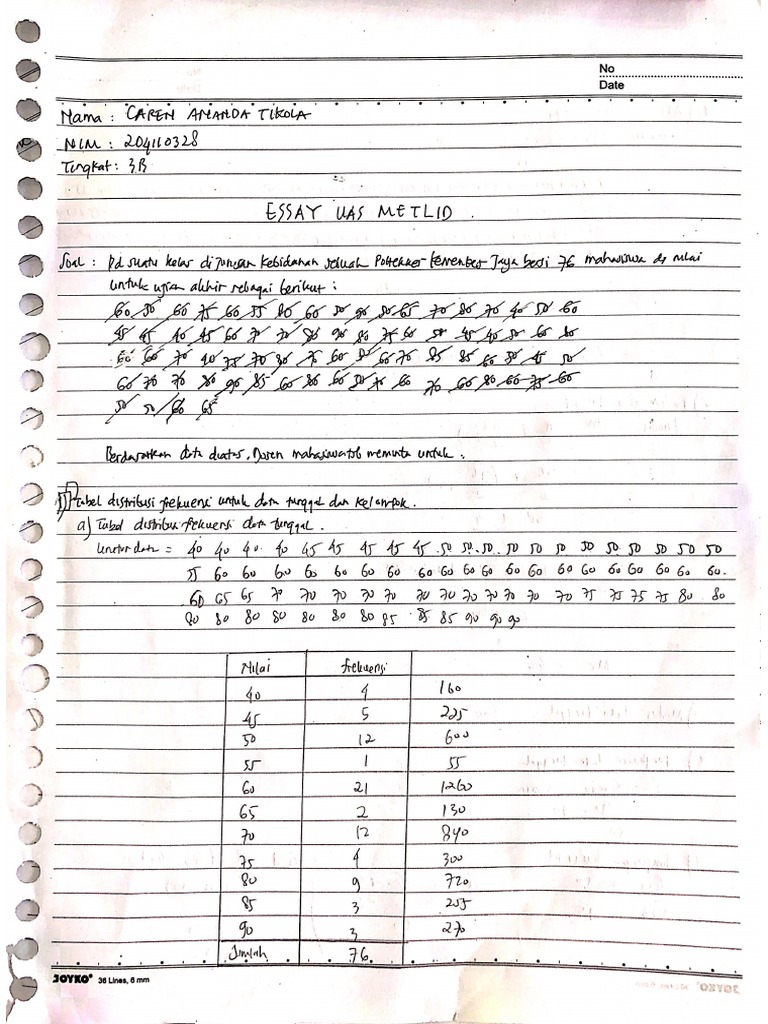 No
Date
Nama : CAREN AMANDA TIKOLA
NIM : 204110328
Tingkat : 3B
ESSAY UAS METLID .
Soal : Pd suatu kelas di jurusan Kebidanan sebuah Poltekkes Kemenkes Jaya berisi 76 mahasiswa dg nilai
untuk ujian akhir sebagai berikut :
60 50 60 75 60 55 80 60 50 90 80 65 70 80 70 40 50 60
45 45 40 45 60 70 70 50 90 80 75 60 50 45 40 50 60 80
60 60 70 40 75 70 80 70 60 50 60 70 85 85 60 50 45 50
60 70 70 80 90 85 60 80 60 50 70 60 70 60 80 60 75 60
50 50 60 65
Berdasarkan data diatas, Dosen mahasiswa tsb meminta untuk :
1) Tabel distribusi frekuensi untuk data tunggal dan kelompok.
a) Tabel distribusi frekuensi data tunggal .
data = 40 40 40 40 45 45 45 45 45 50 50 50 50 50 50 50 50 50 50 50 50
55 60 60 60 60 60 60 60 60 60 60 60 60 60 60 60 60 60 60 60 60.
60 65 65 70 70 70 70 70 70 70 70 70 70 70 70 75 75 75 75 80 80
80 80 80 80 80 80 80 85 85 85 90 90 90
Nilai Frekuensi
40 4 160
45 5 225
50 12 600
55 1 55
60 21 1260
65 2 130
70 12 840
75 4 300
80 9 720
85 3 255
90 3 270
Jumlah 76
JOYKO® 36 Lines, 6 mm